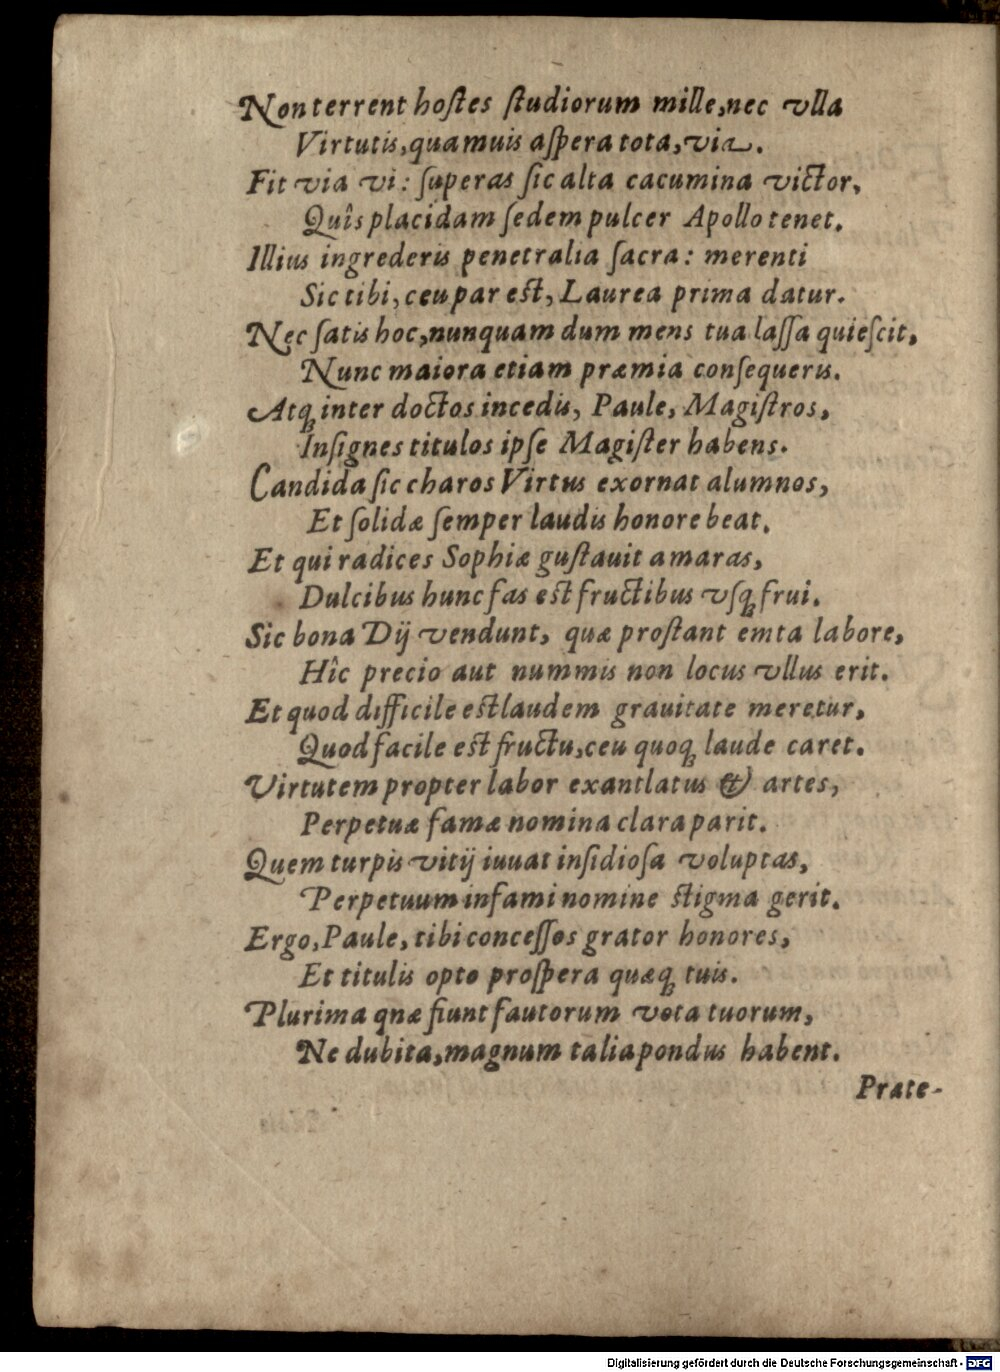 Non terrent hoſtes ſtudiorum mille, nec vlla
Virtutis, quamuis aſpera tota, via.
Fit via vi: ſuperas ſic alta cacumina victor,
Quîs placidam ſedem pulcer Apollo tenet.
Illius ingrederis penetralia ſacra: merenti
Sic tibi, ceu par eſt, Laurea prima datur.
Nec ſatis hoc, nunquam dum mens tua laſſa quieſcit,
Nunc maiora etiam præmia conſequeris.
Atq́ue inter doctos incedis, Paule, Magiſtros,
Inſignes titulos ipſe Magiſter habens.
Candida ſic charos Virtus exornat alumnos,
Et ſolidæ ſemper laudis honore beat.
Et qui radices Sophiæ guſtauit amaras,
Dulcibus hunc fas eſt fructibus vſq; frui.
Sic bona Dij vendunt, quæ proſtant emta labore,
Hîc precio aut nummis non locus vllus erit.
Et quod difficile eſt laudem grauitate meretur,
Quod facile eſt fructu, ceu quoq; laude caret.
Virtutem propter labor exantlatus & artes,
Perpetuæ famæ nomina clara parit.
Quem turpis vitij iuuat inſidioſa voluptas,
Perpetuum infami nomine ſtigma gerit.
Ergo, Paule, tibi conceſſos grator honores,
Et titulis opto proſpera quæq; tuis.
Plurima qnæ fiunt fautorum vota tuorum,
Ne dubita, magnum talia pondus habent.
Prate-
Digitalisierung gefördert durch die Deutsche Forschungsgemeinschaft - DFG